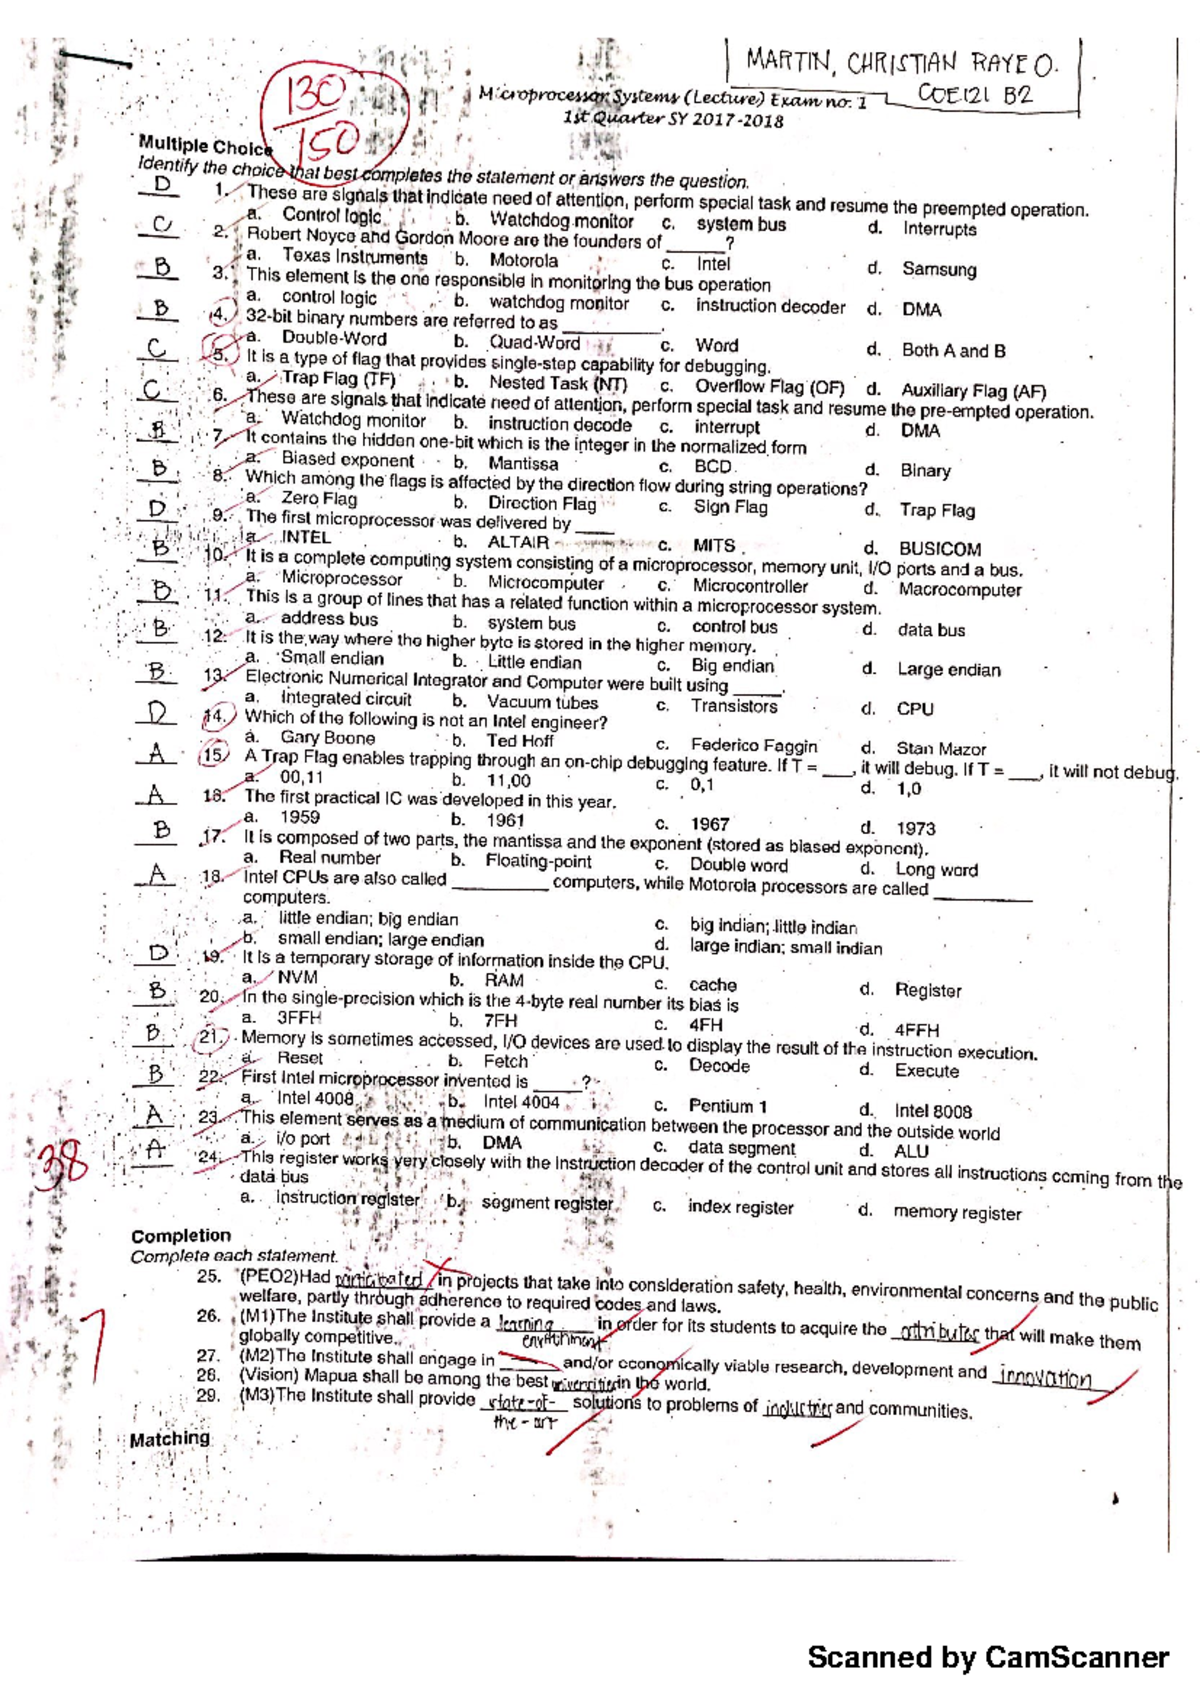 MARTIN, CHRISTIAN RAYE O.
COE121 B2
130
150
Microprocessor Systems (Lecture) Exam no. 1
1st Quarter SY 2017-2018
Multiple Choice
Identify the choice that best completes the statement or answers the question.
D 1. These are signals that indicate need of attention, perform special task and resume the preempted operation.
a. Control logic b. Watchdog monitor c. system bus d. Interrupts
C 2. Robert Noyce and Gordon Moore are the founders of ______?
a. Texas Instruments b. Motorola c. Intel d. Samsung
B 3. This element is the one responsible in monitoring the bus operation
a. control logic b. watchdog monitor c. instruction decoder d. DMA
B 4. 32-bit binary numbers are referred to as __________.
a. Double-Word b. Quad-Word c. Word d. Both A and B
C 5. It is a type of flag that provides single-step capability for debugging.
a. Trap Flag (TF) b. Nested Task (NT) c. Overflow Flag (OF) d. Auxiliary Flag (AF)
C 6. These are signals that indicate need of attention, perform special task and resume the pre-empted operation.
a. Watchdog monitor b. instruction decode c. interrupt d. DMA
B 7. It contains the hidden one-bit which is the integer in the normalized form
a. Biased exponent b. Mantissa c. BCD d. Binary
B 8. Which among the flags is affected by the direction flow during string operations?
a. Zero Flag b. Direction Flag c. Sign Flag d. Trap Flag
D 9. The first microprocessor was delivered by ____
a. INTEL b. ALTAIR c. MITS d. BUSICOM
B 10. It is a complete computing system consisting of a microprocessor, memory unit, I/O ports and a bus.
a. Microprocessor b. Microcomputer c. Microcontroller d. Macrocomputer
B 11. This is a group of lines that has a related function within a microprocessor system.
a. address bus b. system bus c. control bus d. data bus
B 12. It is the way where the higher byte is stored in the higher memory.
a. Small endian b. Little endian c. Big endian d. Large endian
B 13. Electronic Numerical Integrator and Computer were built using _____.
a. Integrated circuit b. Vacuum tubes c. Transistors d. CPU
D 14. Which of the following is not an Intel engineer?
a. Gary Boone b. Ted Hoff c. Federico Faggin d. Stan Mazor
A 15. A Trap Flag enables trapping through an on-chip debugging feature. If T = ___, it will debug. If T = ___, it will not debug.
a. 00,11 b. 11,00 c. 0,1 d. 1,0
A 16. The first practical IC was developed in this year.
a. 1959 b. 1961 c. 1967 d. 1973
B 17. It is composed of two parts, the mantissa and the exponent (stored as biased exponent).
a. Real number b. Floating-point c. Double word d. Long word
A 18. Intel CPUs are also called __________ computers, while Motorola processors are called __________
computers.
a. little endian; big endian c. big indian; little indian
b. small endian; large endian d. large indian; small indian
D 19. It is a temporary storage of information inside the CPU.
a. NVM b. RAM c. cache d. Register
B 20. In the single-precision which is the 4-byte real number its bias is
a. 3FFH b. 7FH c. 4FH d. 4FFH
B 21. Memory is sometimes accessed, I/O devices are used to display the result of the instruction execution.
a. Reset b. Fetch c. Decode d. Execute
B 22. First Intel microprocessor invented is _____?
a. Intel 4008 b. Intel 4004 c. Pentium 1 d. Intel 8008
A 23. This element serves as a medium of communication between the processor and the outside world
a. i/o port b. DMA c. data segment d. ALU
38
A 24. This register works very closely with the Instruction decoder of the control unit and stores all instructions coming from the
data bus
a. Instruction register b. segment register c. index register d. memory register
Completion
Complete each statement.
25. (PEO2)Had participated in projects that take into consideration safety, health, environmental concerns and the public
welfare, partly through adherence to required codes and laws.
26. (M1)The Institute shall provide a learning environment in order for its students to acquire the attributes that will make them
globally competitive.
7
27. (M2)The Institute shall engage in ______ and/or economically viable research, development and innovation
28. (Vision) Mapua shall be among the best universities in the world.
29. (M3)The Institute shall provide state-of-the-art solutions to problems of industries and communities.
Matching
Scanned by CamScanner